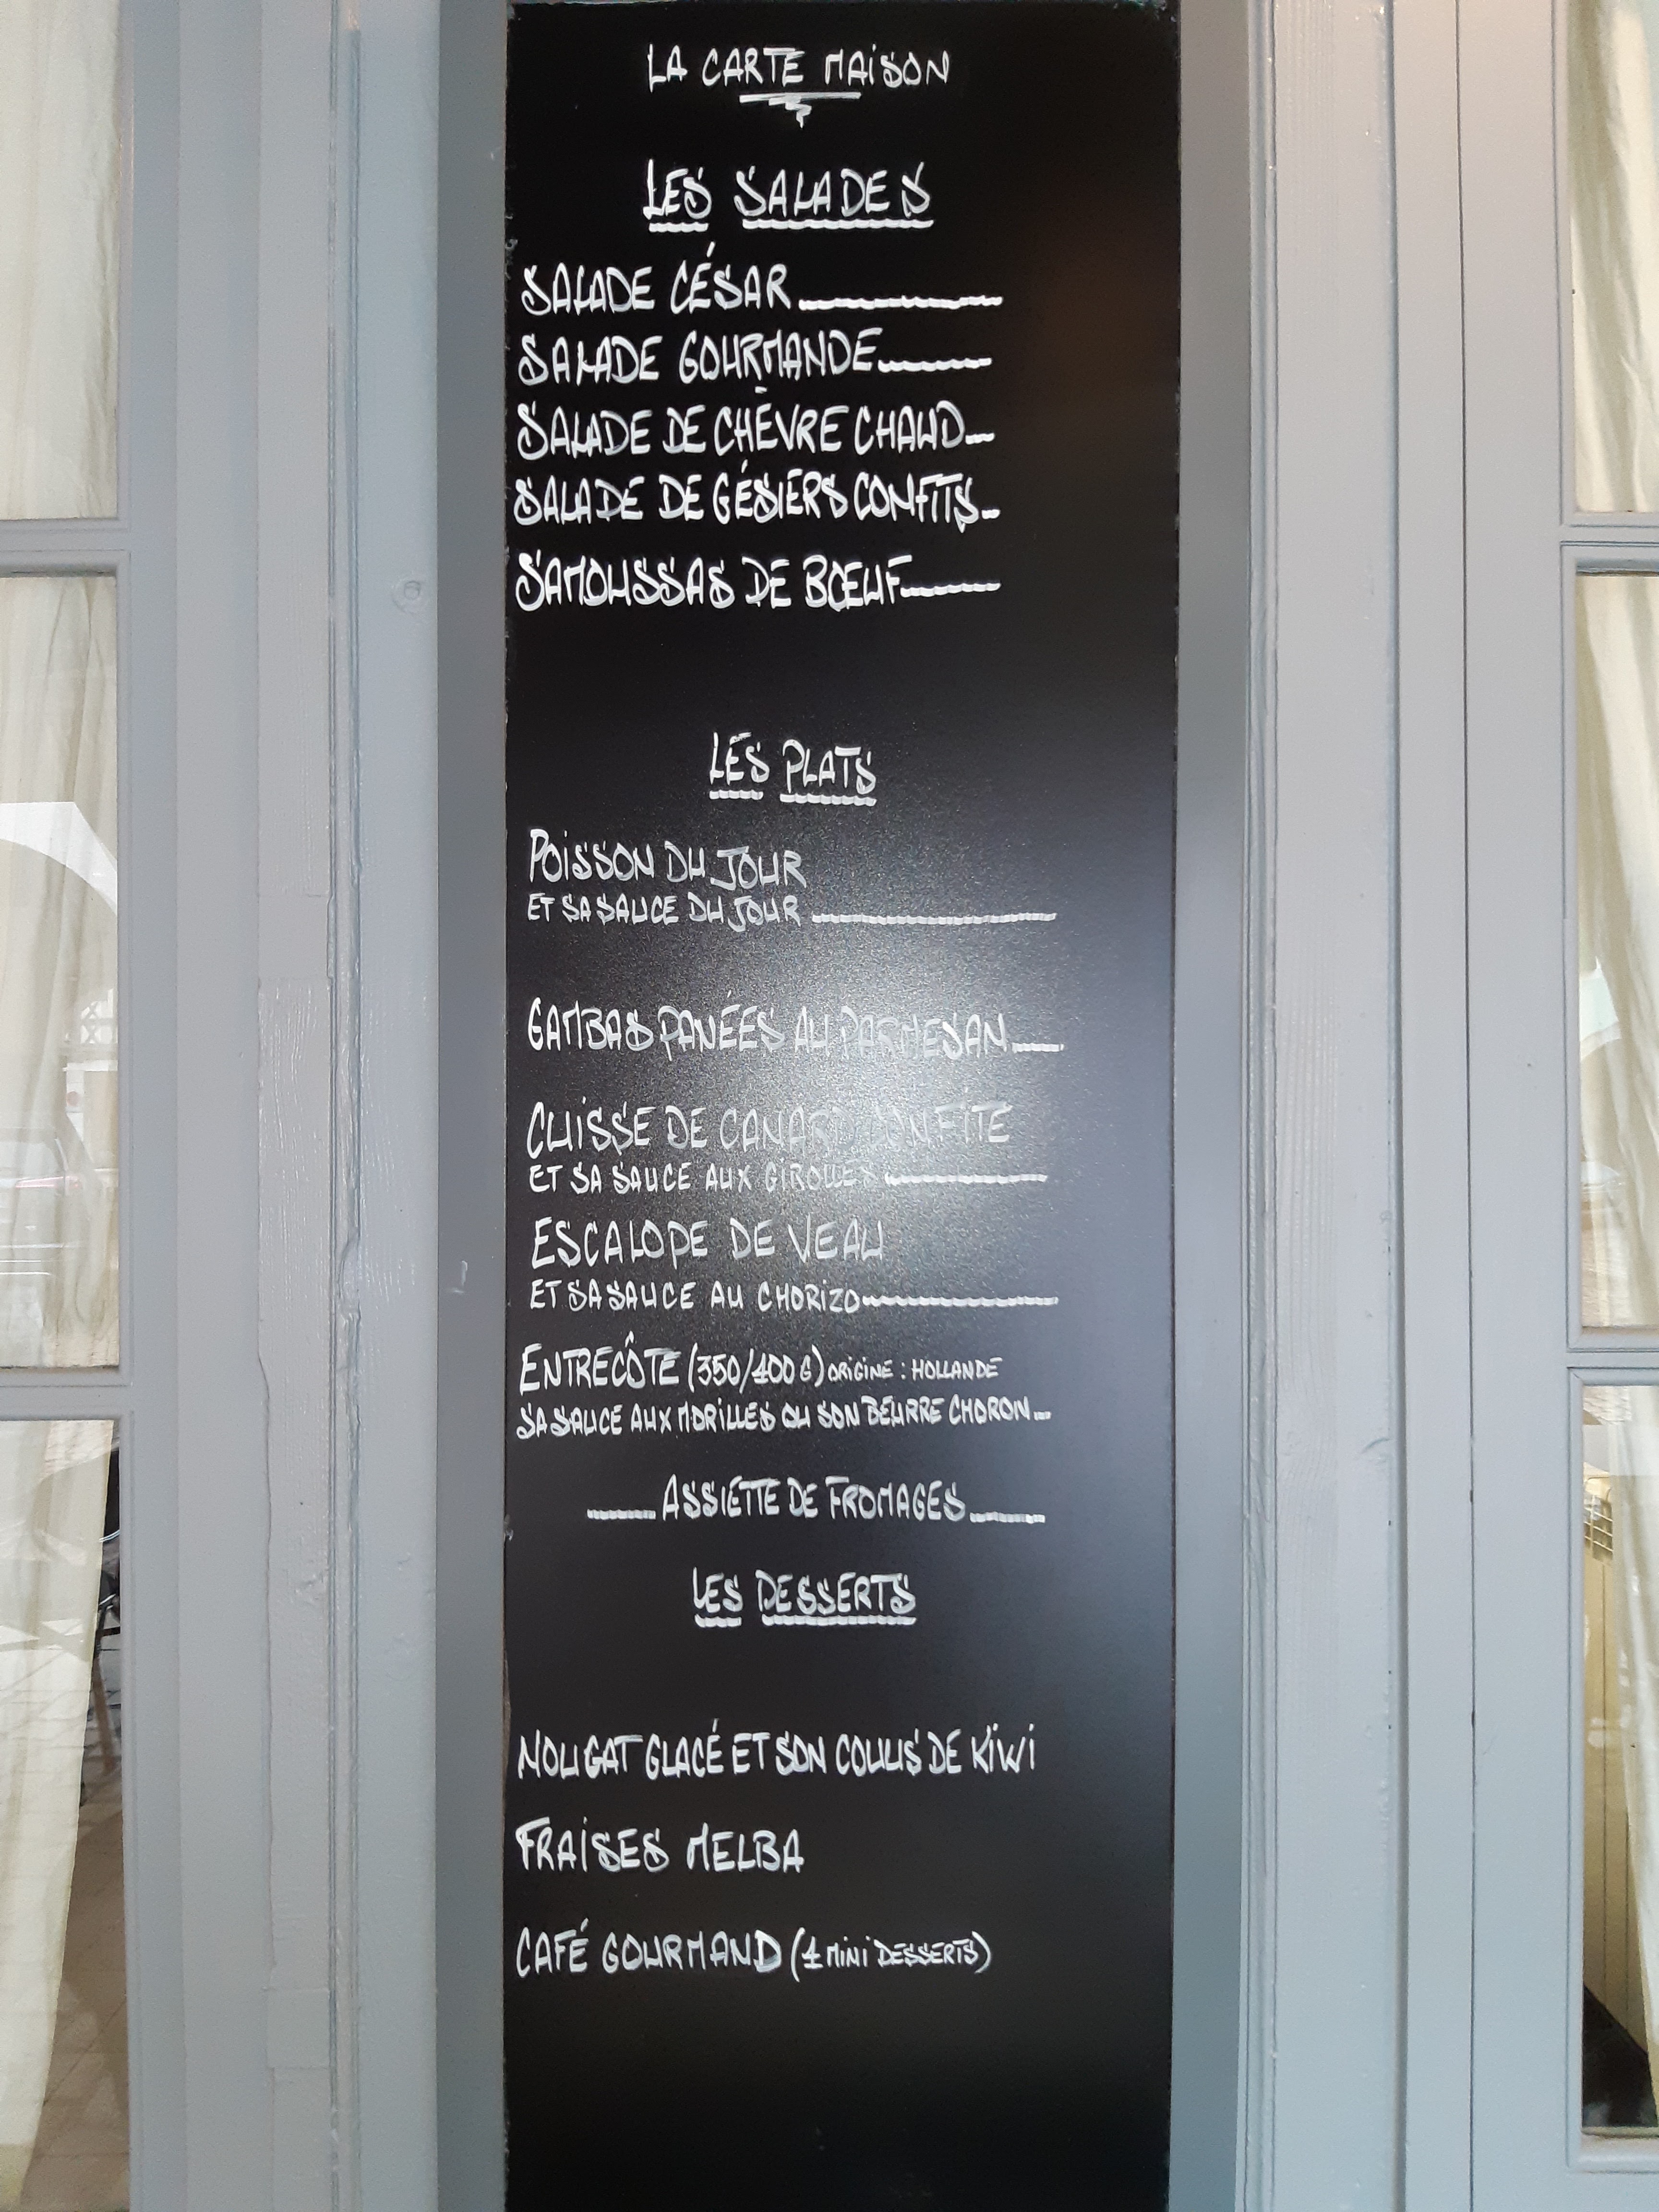 LA CARTE MAiSON
LES SALADES
SALADE CÉSAR
SALADE GOURMANDE
SALADE DE CHÈVRE CHAUD
SALADE DE GÉSIERS CONFITS
SAMOUSSAS DE BŒUF
LES PLATS
POiSSON DU JOUR
ET SA SAUCE DU JOUR
GAMBAS PANÉES AU PARMESAN
CUiSSE DE CANARD CONFITE
ET SA SAUCE AUX GiROLLES
ESCALOPE DE VEAU
ET SA SAUCE AU CHORiZO
ENTRECÔTE (350/400 G) ORiGiNE : HOLLANDE
SA SAUCE AUX MORiLLES OU SON BEURRE CHORON
ASSiETTE DE FROMAGES
LES DESSERTS
NOUGAT GLACÉ ET SON COULIS DE KiWi
FRAiSES MELBA
CAFÉ GOURMAND (4 MiNi DESSERTS)